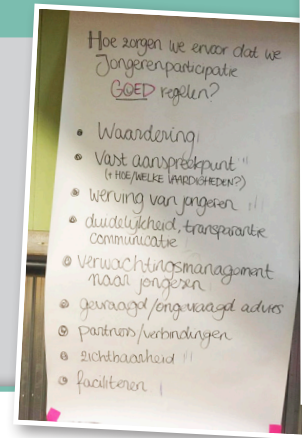 Hoe zorgen we ervoor dat we
Jongerenparticipatie
GOED regelen?
• Waardering
• Vast aanspreekpunt
(+ HOE/WELKE VAARDIGHEDEN?)
• werving van jongeren
• duidelijkheid, transparante
communicatie
• verwachtingsmanagement
naar jongeren
• gevraagd/ongevraagd advies
• partners/verbindingen
• zichtbaarheid
• faciliteren